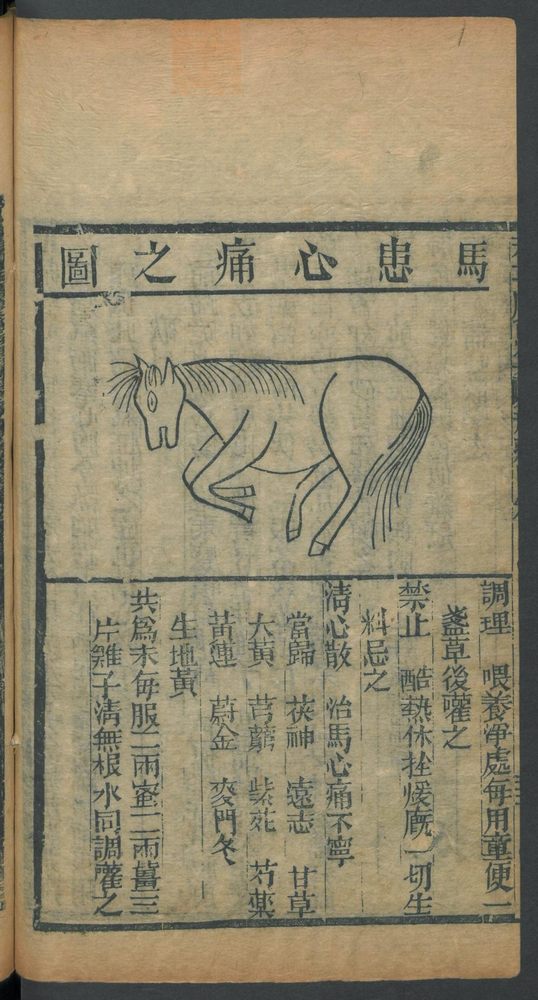 馬患心痛之圖
調理 喂養淨處每用童便一
盞草後嚾之
禁止 酷熱休拴煖廐一切生
料忌之
清心散 治馬心痛不寧
當歸 茯神 遠志 甘草
大黃 芎藭 紫菀 芍藥
黃連 蔚金 麥門冬
生地黃
共爲末每服二兩蜜二兩薑三
片雞子清無根水同調嚾之
1